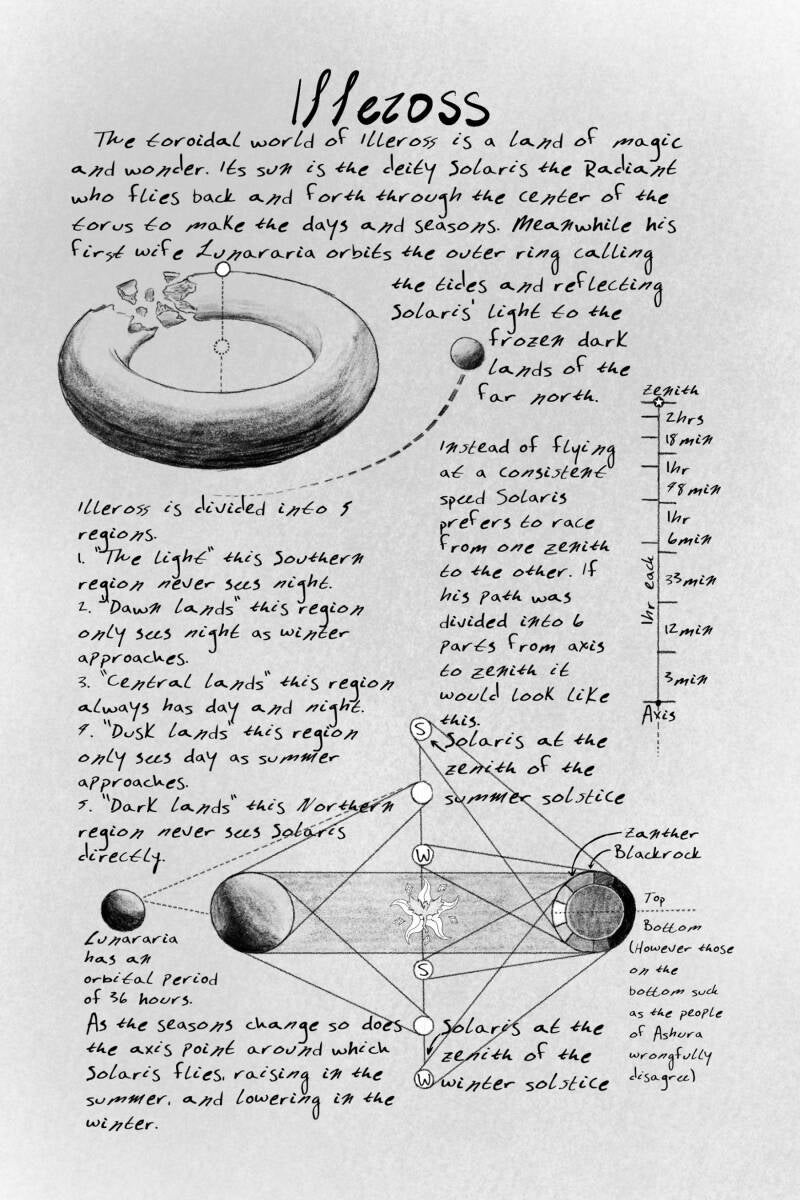 Illeross
The toroidal world of Illeross is a land of magic
and wonder. Its sun is the deity Solaris the Radiant
who flies back and forth through the center of the
torus to make the days and seasons. Meanwhile his
first wife Lunararia orbits the outer ring calling
the tides and reflecting
Solaris' light to the
frozen dark
lands of the
far north.
zenith
2hrs
18min
1hr
48min
1hr
6min
33min
12min
3min
1hr each
Axis
Instead of flying
at a consistent
speed Solaris
prefers to race
from one zenith
to the other. If
his path was
divided into 6
parts from axis
to zenith it
would look like
this.
Illeross is divided into 5
regions.
1. "The light" this Southern
region never sees night.
2. "Dawn lands" this region
only sees night as winter
approaches.
3. "Central lands" this region
always has day and night.
4. "Dusk lands" this region
only sees day as summer
approaches.
5. "Dark lands" this Northern
region never sees Solaris
directly.
S
Solaris at the
zenith of the
summer solstice
W
Zanther
Blackrock
Top
Bottom
(However those
on the
bottom such
as the people
of Ashura
wrongfully
disagree)
Lunararia
has an
orbital period
of 36 hours.
S
As the seasons change so does
the axis point around which
Solaris flies, raising in the
summer, and lowering in the
winter.
Solaris at the
zenith of the
winter solstice
W